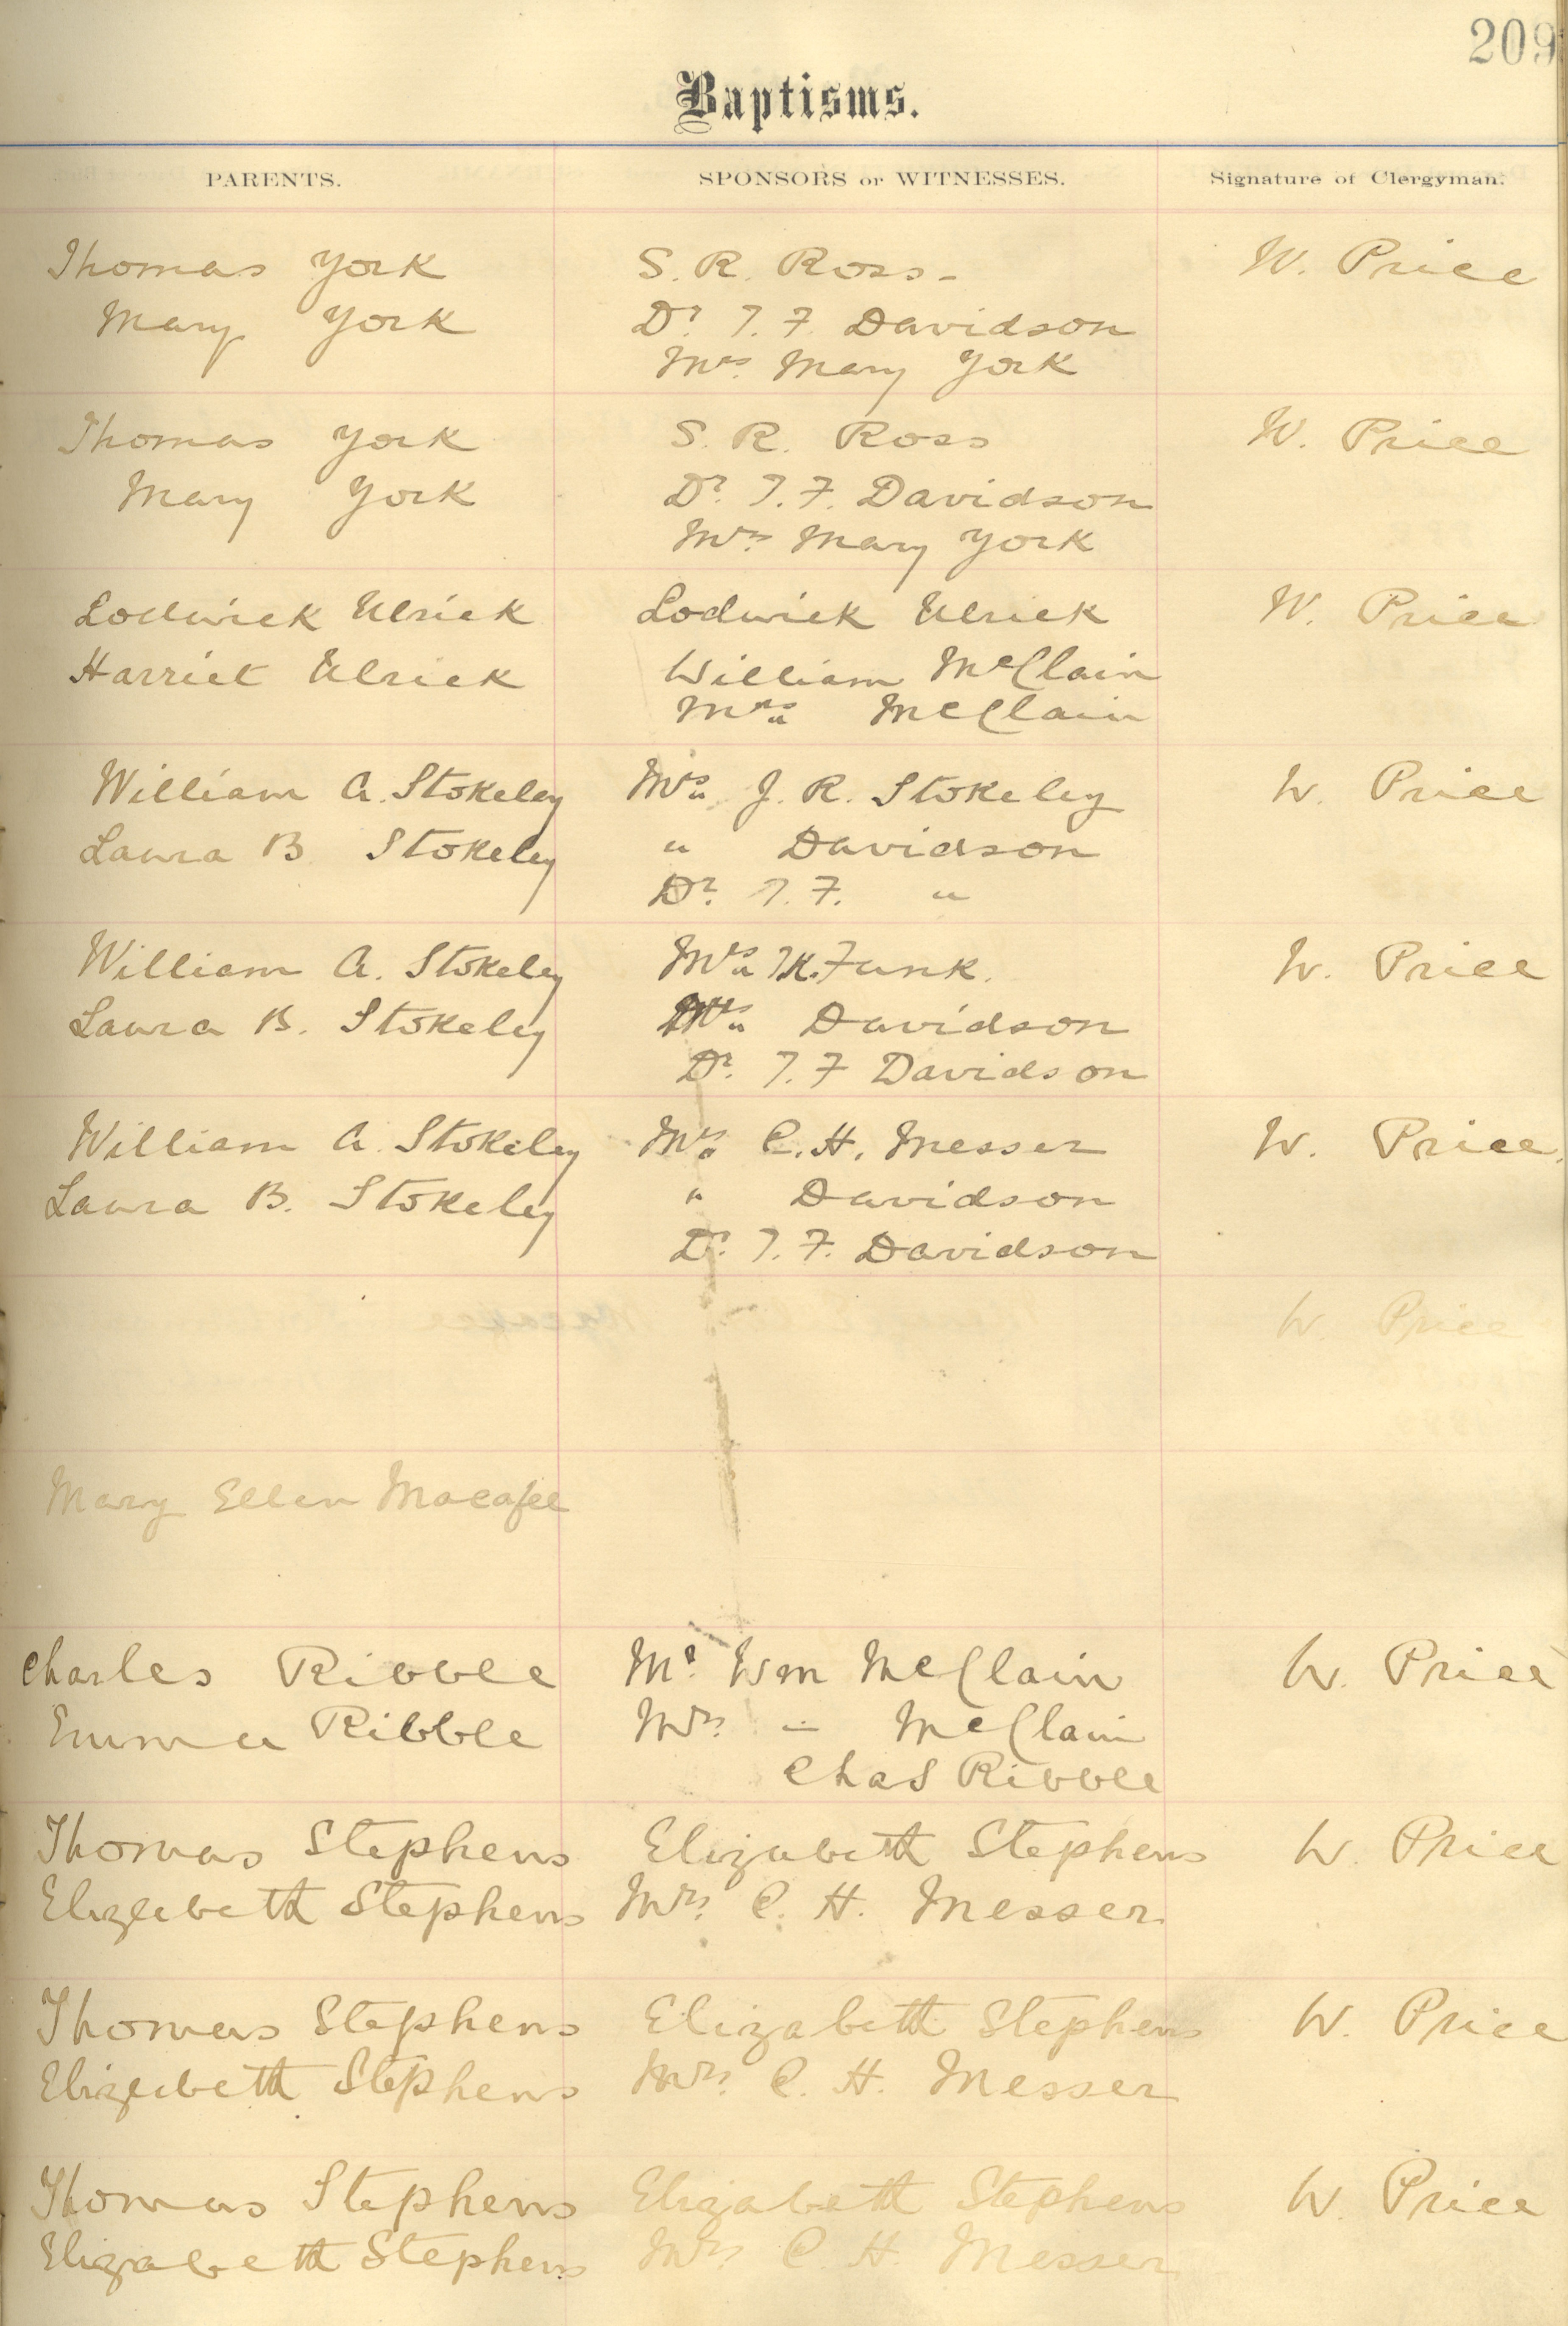 209
Baptisms.
PARENTS. SPONSORS or WITNESSES. Signature of Clergyman.
Thomas York S. R. Ross- W. Price
Mary York Dr. T. F. Davidson
Mrs. Mary York
Thomas York S. R. Ross W. Price
Mary York Dr. T. F. Davidson
Mrs. Mary York
Lodwick Ulrick Lodwick Ulrick W. Price
Harriet Ulrick William McClain
Mrs. McClain
William A. Stokeley Mrs. J. R. Stokeley W. Price
Laura B Stokeley " Davidson
Dr. T. F. "
William A. Stokeley Mrs. K. Funk. W. Price
Laura B. Stokeley Mrs. Davidson
Dr. T. F Davidson
William A. Stokeley Mrs. C. H. Messer W. Price.
Laura B. Stokeley " Davidson
Dr. T. F. Davidson
W. Price
Mary Ellen Macafee
Charles Ribble Mr. Wm McClain W. Price
Emma Ribble Mrs. – McClain
Chas Ribble
Thomas Stephens Elizabeth Stephens W. Price
Elizabeth Stephens Mrs. C. H. Messer
Thomas Stephens Elizabeth Stephens W. Price
Elizabeth Stephens Mrs. C. H. Messer
Thomas Stephens Elizabeth Stephens W. Price
Elizabeth Stephens Mrs. C H Messer